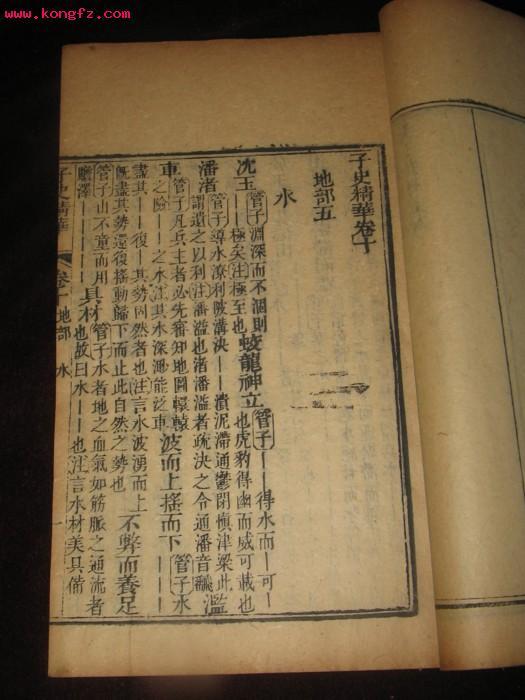 www.kongfz.com
子史精華卷十
地部五
水
沈玉管子淵深而不涸則——極矣注極至也蛟龍神立管子——得水而—可—也虎豹得幽而威可載也
潘渚管子導水潦利陂溝決——潰泥滯通鬱閉慎津梁此謂遺之以利注潘溢也渚潘溢者疏決之令通潘音翻濫
車管子凡兵主者必先審知地圖轘轅之險——之水注其水深能泛車波而上搖而下管子水————
盡其——復—其勢固然者也注言水波湧而上旣盡其勢還復搖動歸下而止此自然之勢也不弊而養足
管子山不童而用贍澤————具材管子水者地之血氣如筋脈之通流者也故曰水——也注言水材美具備
子史精華 卷十 地部 水 一